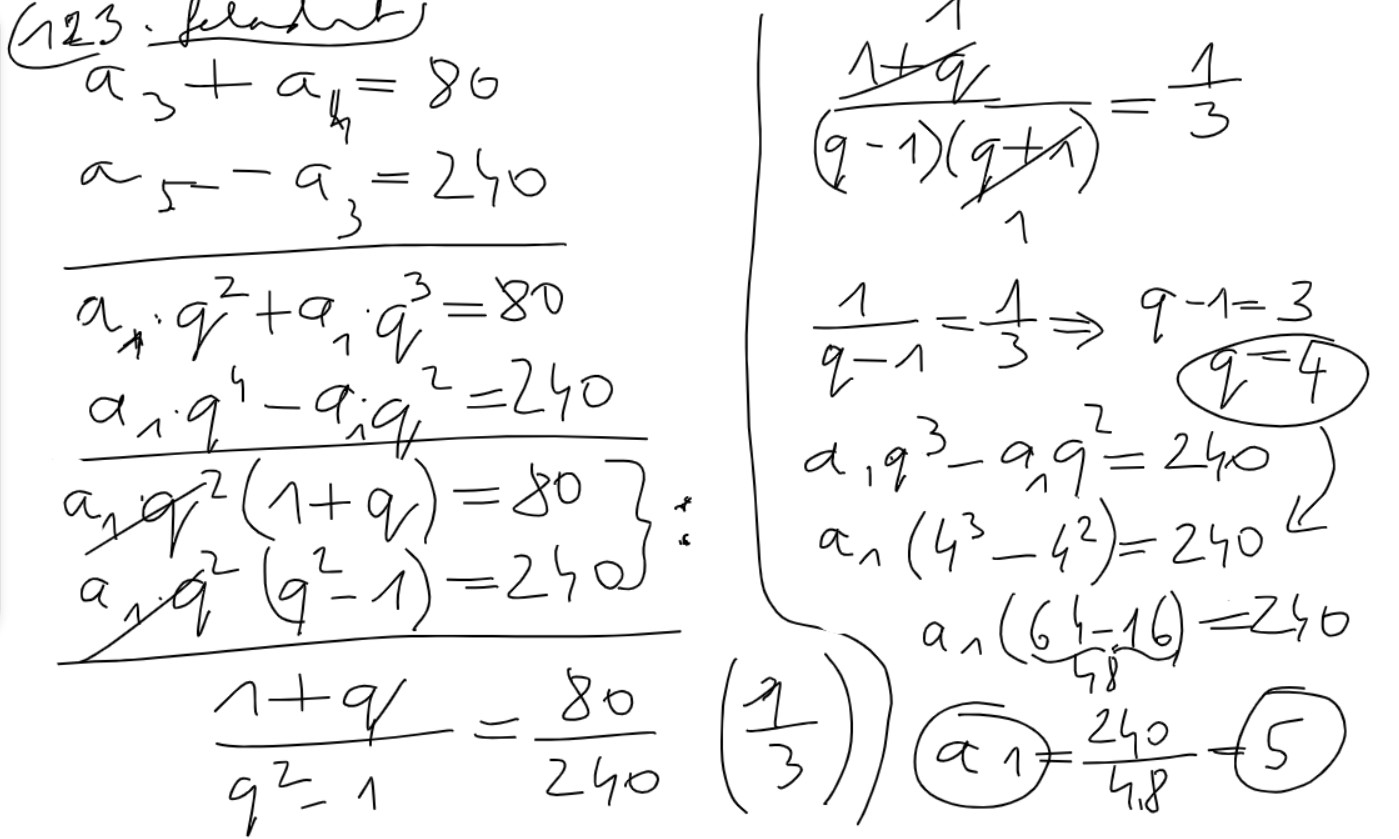 123. feladat
a₃ + a₄ = 80
a₅ - a₃ = 240
a₁·q² + a₁·q³ = 80
a₁·q⁴ - a₁·q² = 240
a₁·q²(1+q) = 80
a₁·q²(q²-1) = 240 } :
(1+q)/(q²-1) = 80/240 (1/3)
1
(1+q)/((q-1)(q+1)) = 1/3
1
1/(q-1) = 1/3 ⇒ q-1=3
q=4
a₁q³ - a₁q² = 240
a₁(4³ - 4²) = 240
a₁(64-16) = 240
48
a₁ = 240/48 = 5